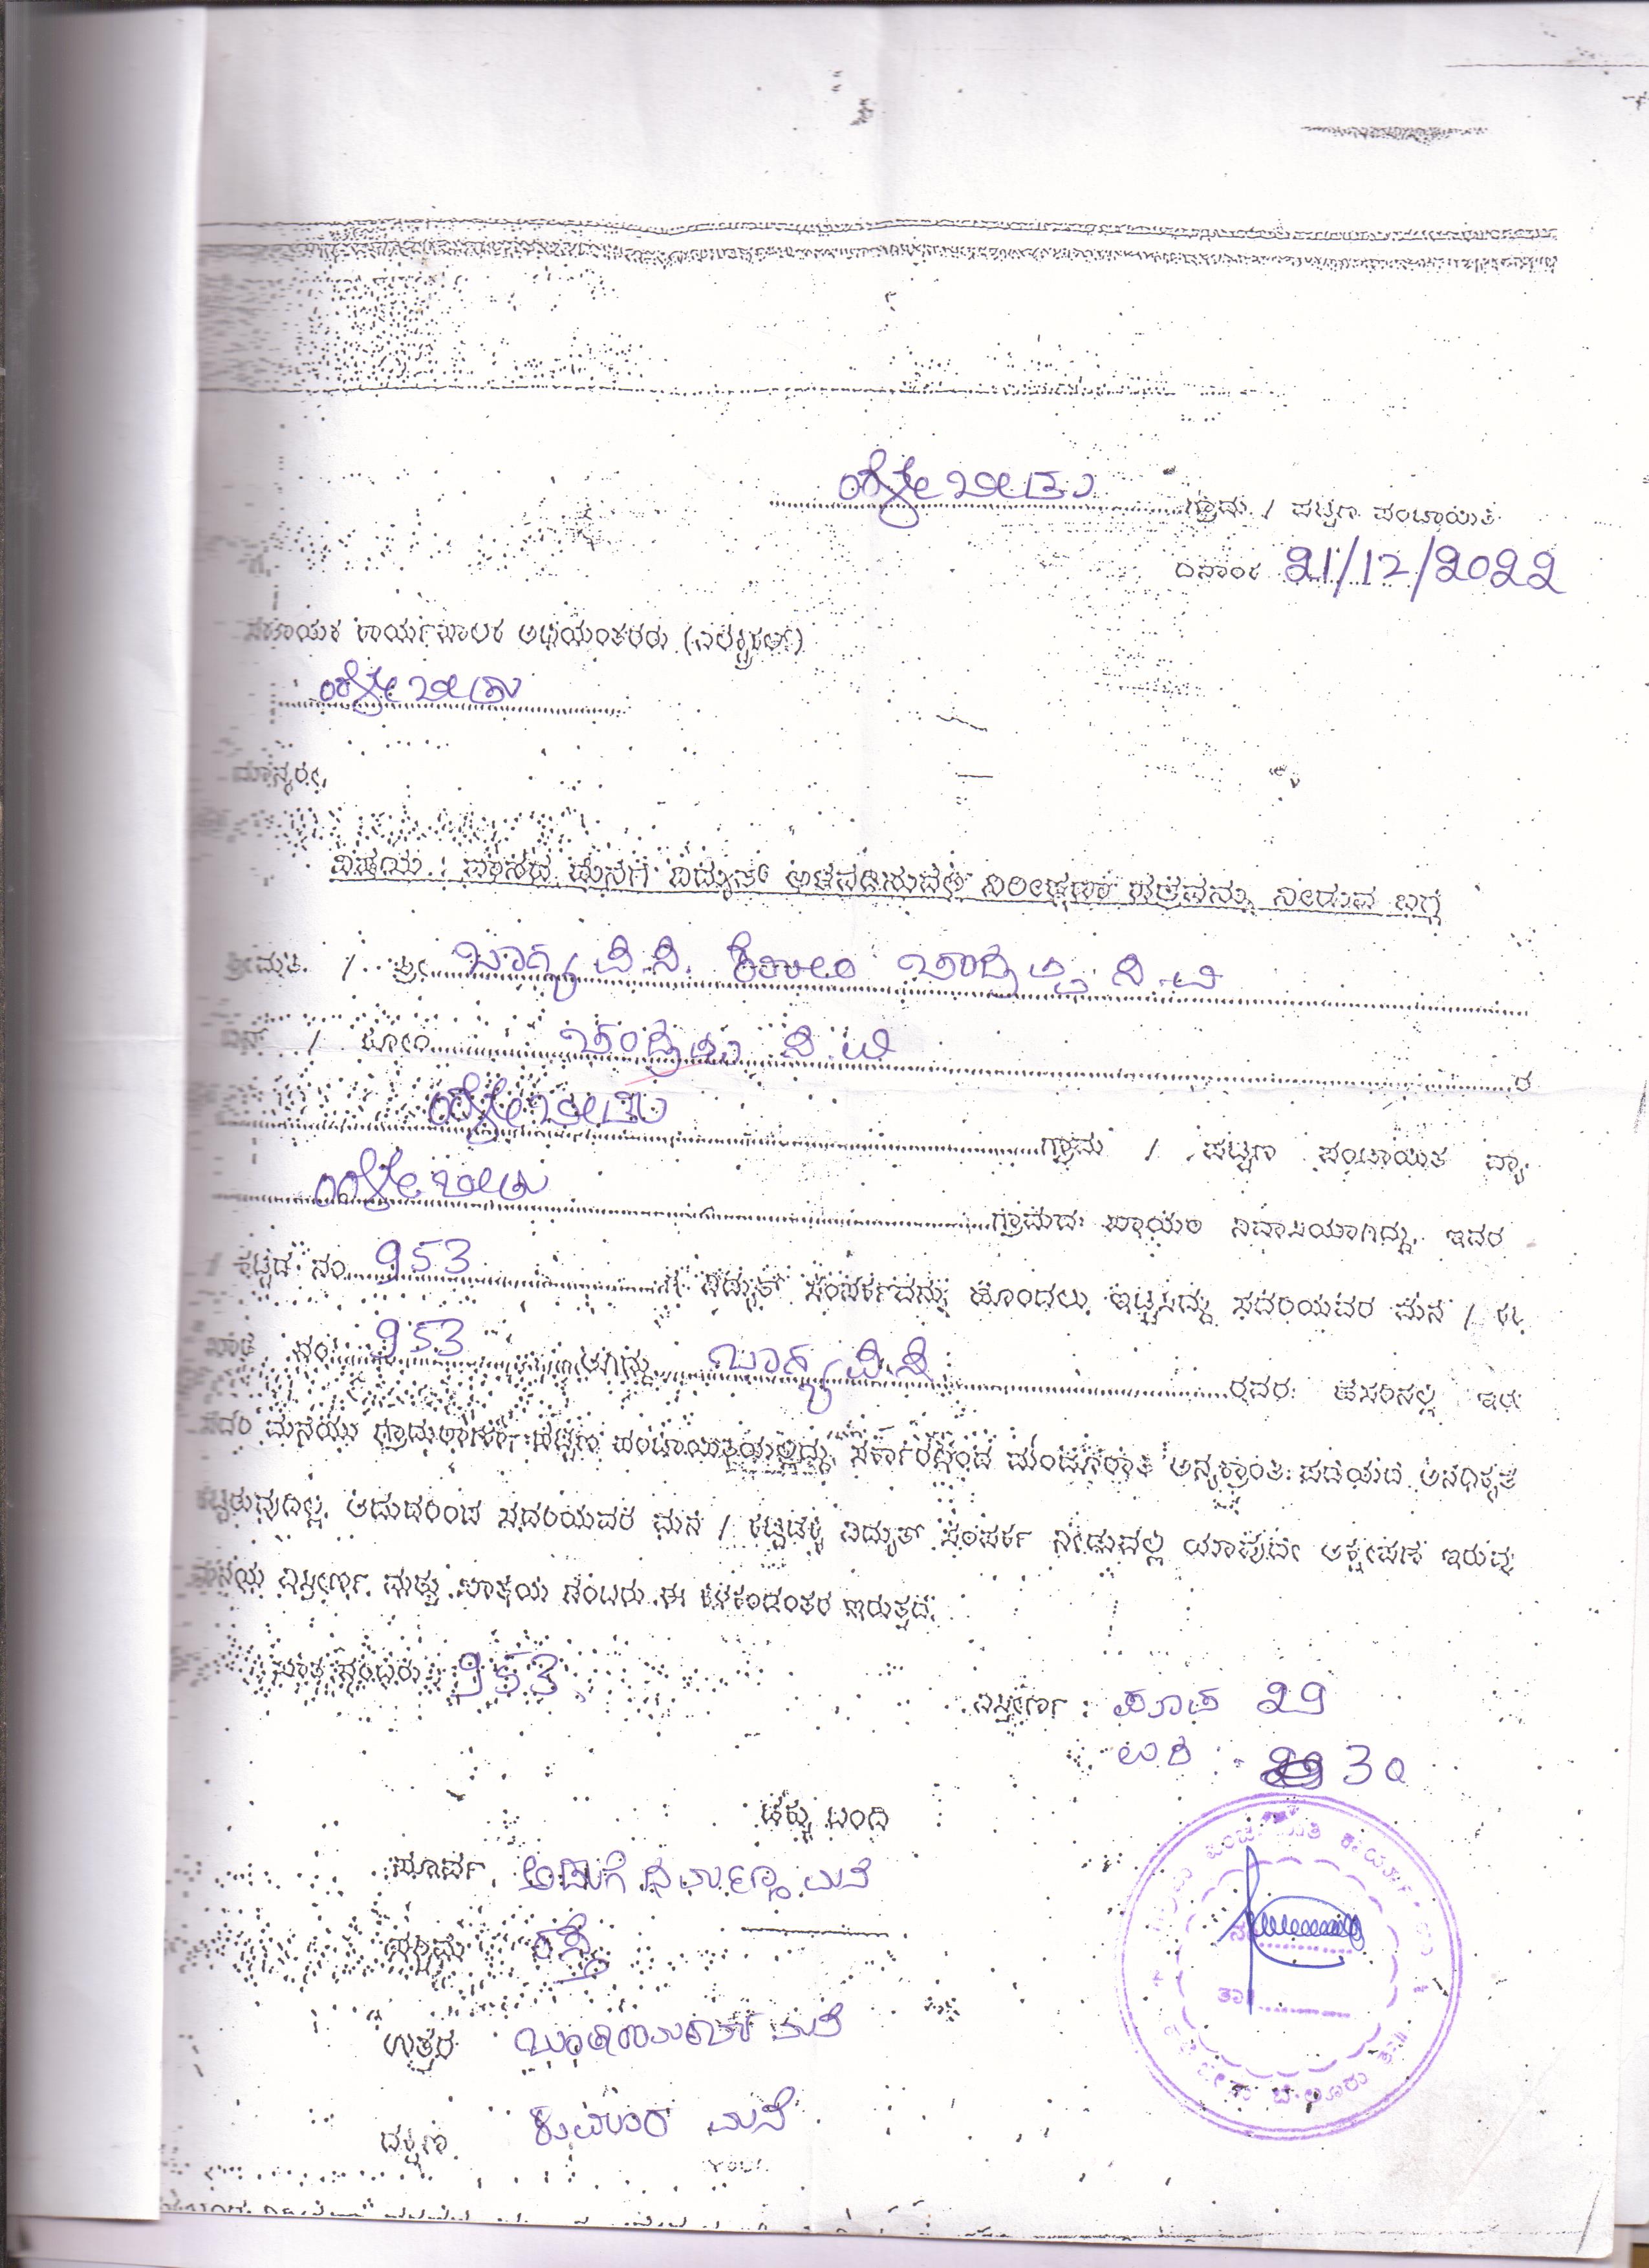 ಹಳೇಬೀಡು ಗ್ರಾಮ / ಪಟ್ಟಣ ಪಂಚಾಯಿತಿ
ದಿನಾಂಕ 21/12/2022
ಸಹಾಯಕ ಕಾರ್ಯಪಾಲಕ ಅಭಿಯಂತರರು (ಎಲೆಕ್ಟ್ರಿಕಲ್)
ಹಳೇಬೀಡು
ಮಾನ್ಯರೇ,
ವಿಷಯ : ವಾಸದ ಮನೆಗೆ ವಿದ್ಯುತ್ ಅಳವಡಿಸುವಲ್ಲಿ ನಿರಾಕ್ಷೇಪಣಾ ಪತ್ರವನ್ನು ನೀಡುವ ಬಗ್ಗೆ
ಶ್ರೀಮತಿ / ಶ್ರೀ ಭಾಗ್ಯ ವಿ.ಸಿ. ಕೋಂ
ಬಿನ್ / ಕೋಂ ರ
ಹಳೇಬೀಡು ಗ್ರಾಮ / ಪಟ್ಟಣ ಪಂಚಾಯಿತಿ ವ್ಯಾ
ಹಳೇಬೀಡು ಗ್ರಾಮದ ಖಾಯಂ ನಿವಾಸಿಯಾಗಿದ್ದು, ಇವರ
/ ಕಟ್ಟಡ ನಂ. 953 ಗೆ ವಿದ್ಯುತ್ ಸಂಪರ್ಕವನ್ನು ಹೊಂದಲು ಇಚ್ಛಿಸಿದ್ದು ಸದರಿಯವರ ಮನೆ / ಕಟ
ಖಾತೆ ನಂ 953 ಆಗಿದ್ದು ಭಾಗ್ಯ ವಿ.ಸಿ. ರವರ ಹೆಸರಿನಲ್ಲಿ ಇದೆ
ಸದರಿ ಮನೆಯು ಗ್ರಾಮಠಾಣಾ / ಪಟ್ಟಣ ಪಂಚಾಯಿತಿಯಲ್ಲಿದ್ದು, ಸರ್ಕಾರದಿಂದ ಮಂಜೂರಾತಿ ಅನ್ಯಕ್ರಾಂತ ಪಡೆಯದೆ ಅನಧಿಕೃತ
ಕಟ್ಟಿರುವುದಿಲ್ಲ. ಆದುದರಿಂದ ಸದರಿಯವರ ಮನೆ / ಕಟ್ಟಡಕ್ಕೆ ವಿದ್ಯುತ್ ಸಂಪರ್ಕ ನೀಡುವಲ್ಲಿ ಯಾವುದೇ ಆಕ್ಷೇಪಣೆ ಇರುವು
ಮನೆಯ ವಿಸ್ತೀರ್ಣ ಮತ್ತು ಖಾತೆಯ ನಂಬರು ಈ ಕೆಳಕಂಡಂತಿರ ಇರುತ್ತದೆ.
ಖಾತೆ ನಂಬರು : 953
ವಿಸ್ತೀರ್ಣ : ಪೂಪ 29
ಉದ : 30
ಚೆಕ್ಕು ಬಂದಿ
ಪೂರ್ವ ಮನೆ
ಪಶ್ಚಿಮ ರಸ್ತೆ
ಉತ್ತರ ಮನೆ
ದಕ್ಷಿಣ ಕುಮಾರ ಮನೆ